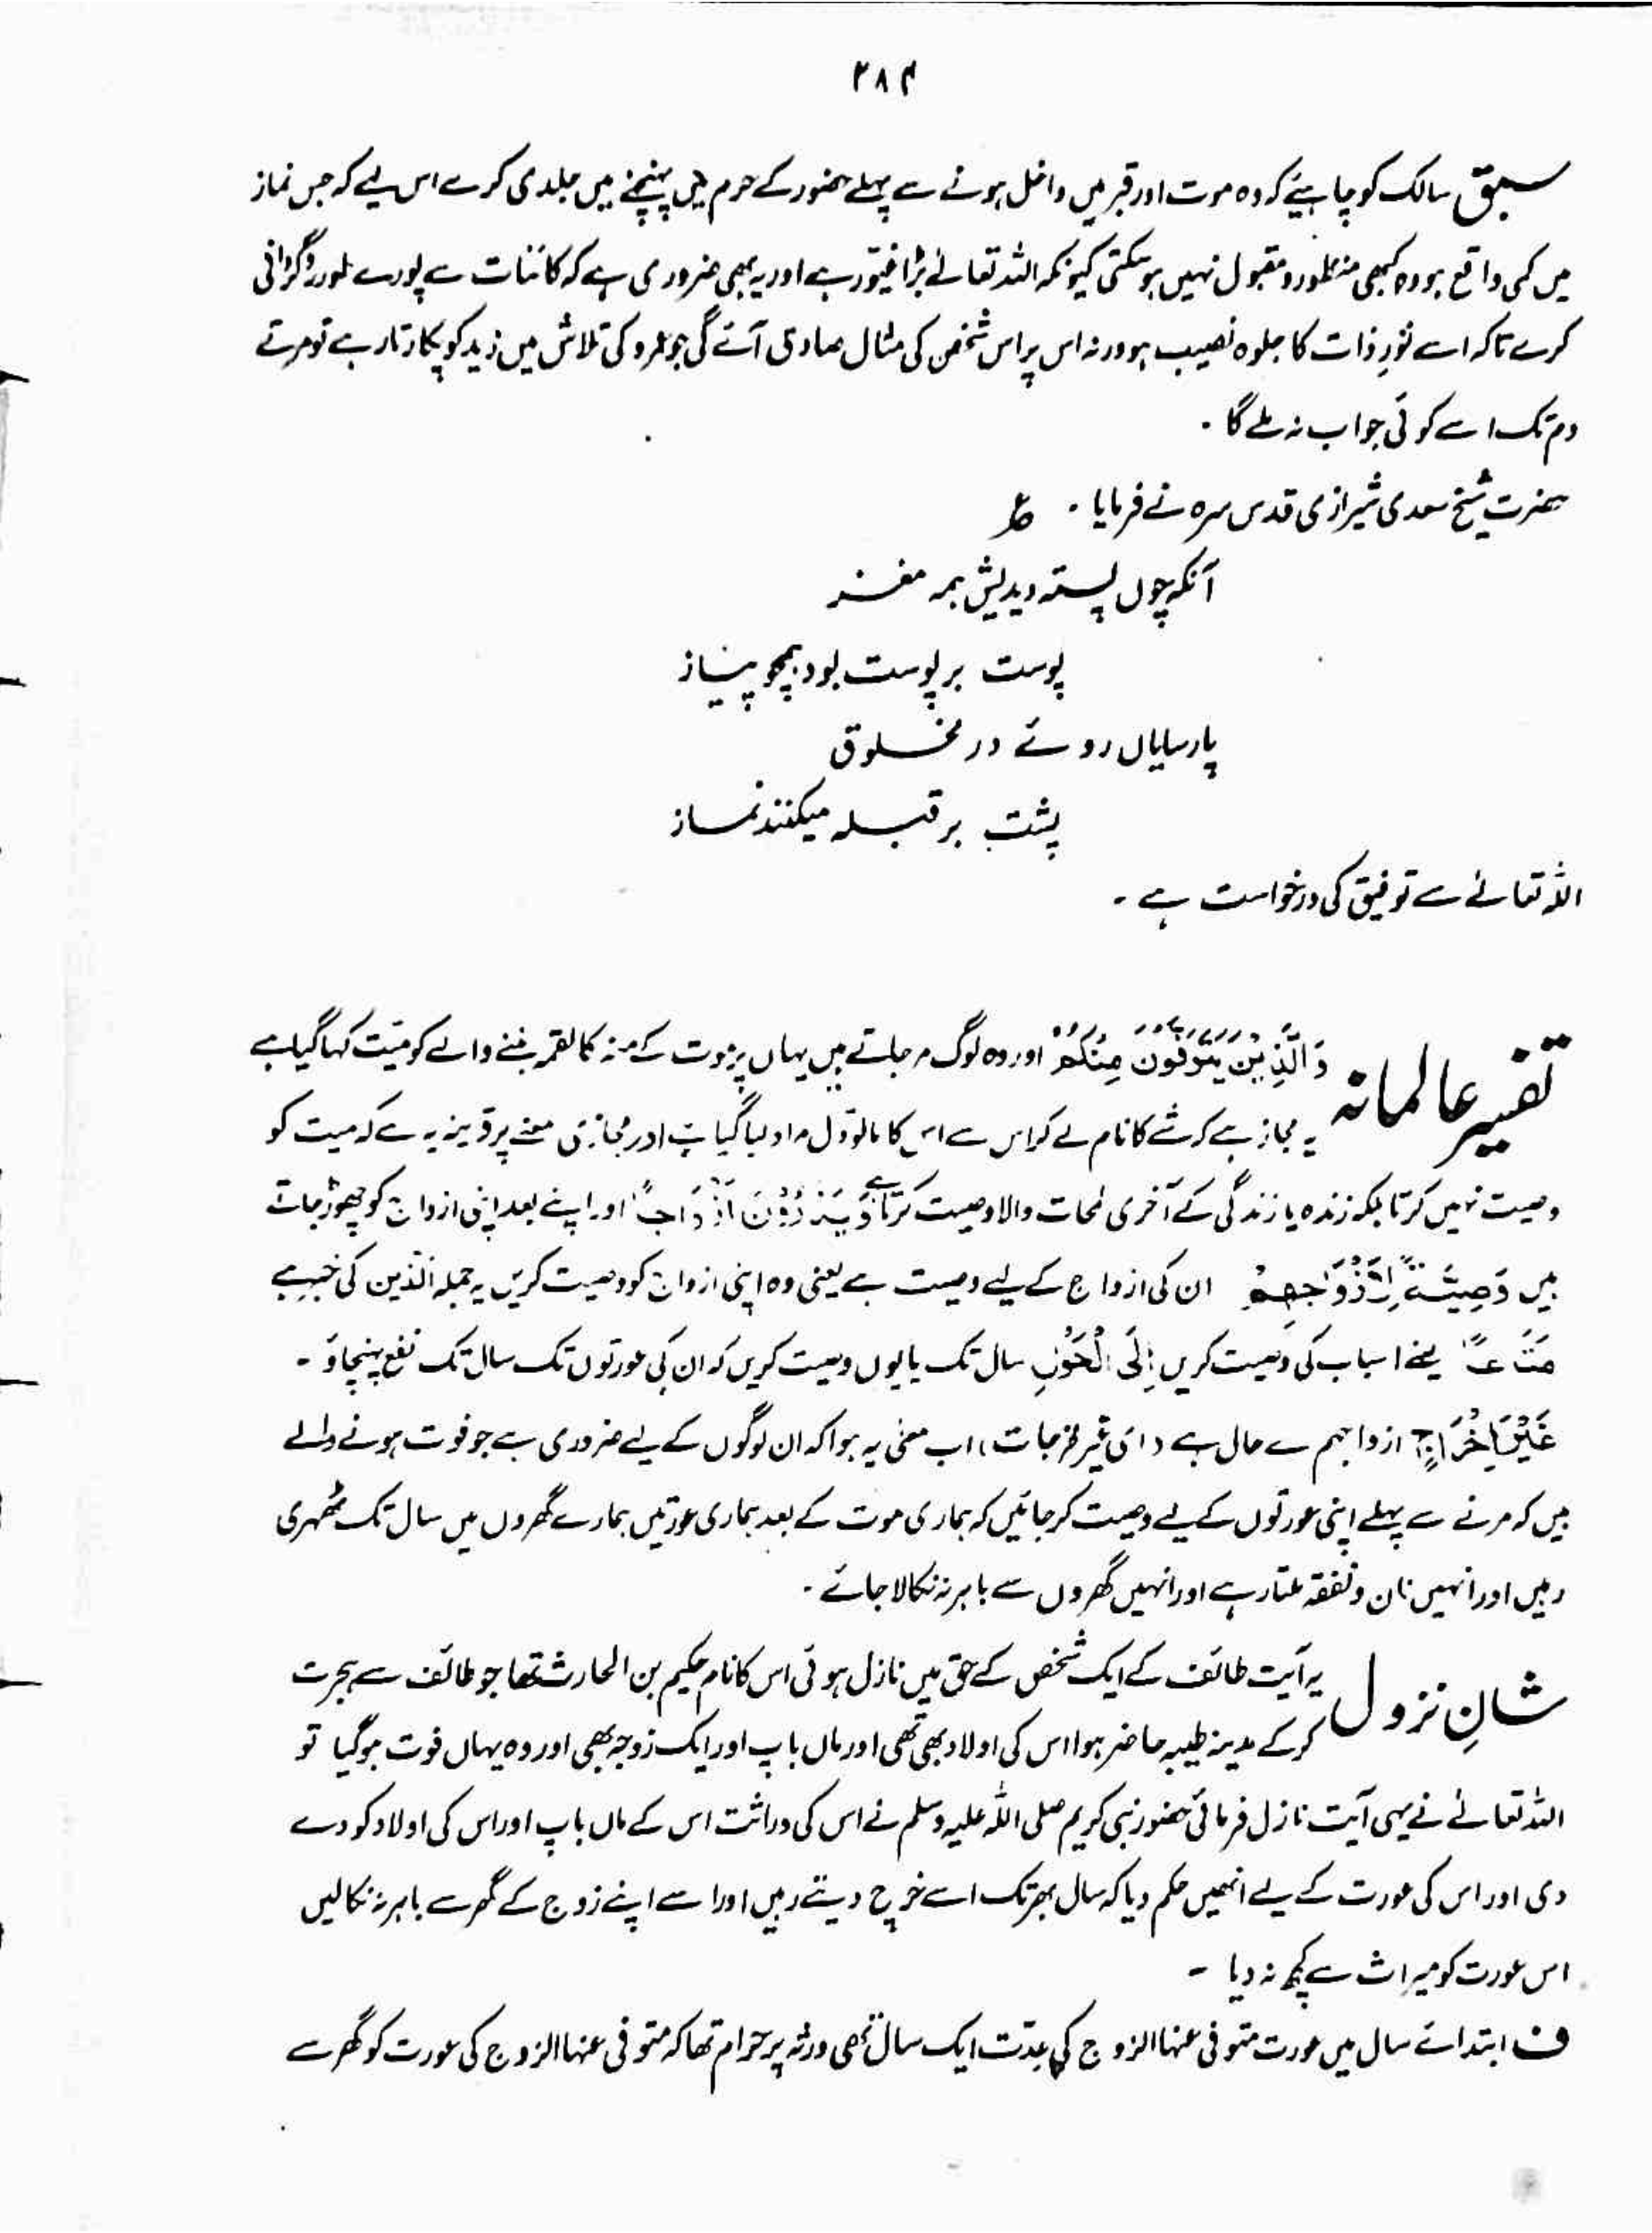 ۲۸۴
سبق سالک کو چاہیئے کہ وہ موت اور قبر میں داخل ہونے سے پہلے حضور کے حرم میں پہنچنے میں جلدی کرے اس لیے کہ جس نماز
میں کمی واقع ہو وہ کبھی منظور و مقبول نہیں ہو سکتی کیونکہ اللہ تعالےٰ بڑا غیور ہے اور یہ بھی ضروری ہے کہ کائنات سے پورے طور روگردانی
کرے تاکہ اسے نورِ ذات کا جلوہ نصیب ہو ورنہ اس پر اس شخص کی مثال صادق آئے گی جو عمرو کی تلاش میں زید کو پکارتا رہے تو مرتے
دم تک اسے کوئی جواب نہ ملے گا ۔
حضرت شیخ سعدی شیرازی قدس سرہ نے فرمایا ۔ ؏
آنکہ چوں پستہ دیدیش ہمہ مغز
پوست بر پوست بود ہمچو پیاز
پارسایاں روئے در مخلوق
پشت بر قبلہ میکنند نماز
اللہ تعالےٰ سے توفیق کی درخواست ہے ۔
تفسیر عالمانہ وَالَّذِیْنَ یُتَوَفَّوْنَ مِنْکُمْ اور وہ لوگ مر جاتے ہیں یہاں پر موت کے منہ کا لقمہ بننے والے کو میّت کہا گیا ہے
یہ مجاز ہے کہ شے کا نام لے کر اس سے اس کا مایؤول مراد لیا گیا ہے اور مجازی معنے پر قرینہ یہ ہے کہ میت کو
وصیت نہیں کرتا بلکہ زندہ یا زندگی کے آخری لمحات والا وصیت کرتا ہے وَیَذَرُوْنَ اَزْوَاجًا اور اپنے بعد اپنی ازواج کو چھوڑ جاتے
ہیں وَصِیَّۃً لِّاَزْوَاجِہِمْ ان کی ازواج کے لیے وصیت ہے یعنی وہ اپنی ازواج کو وصیت کریں یہ جملہ الّذین کی خبر ہے
مَتَاعًا یعنے اسباب کی وصیت کریں اِلَی الْحَوْلِ سال تک یا یوں وصیت کریں کہ ان کی عورتوں تک سال تک نفع پہنچاؤ ۔
غَیْرَ اِخْرَاجٍ ازواجہم سے حال ہے (ای غیر مخرجات) اب معنی یہ ہوا کہ ان لوگوں کے لیے ضروری ہے جو فوت ہونے والے
ہیں کہ مرنے سے پہلے اپنی عورتوں کے لیے وصیت کر جائیں کہ ہماری موت کے بعد ہماری عورتیں ہمارے گھروں میں سال تک ٹھہری
رہیں اور انہیں نان و نفقہ ملتا رہے اور انہیں گھروں سے باہر نہ نکالا جائے ۔
شانِ نزول یہ آیت طائف کے ایک شخص کے حق میں نازل ہوئی اس کا نام حکیم بن الحارث تھا جو طائف سے ہجرت
کر کے مدینہ طیبہ حاضر ہوا اس کی اولاد بھی تھی اور ماں باپ اور ایک زوجہ بھی اور وہ یہاں فوت ہو گیا تو
اللہ تعالےٰ نے یہی آیت نازل فرمائی حضور نبی کریم صلی اللہ علیہ وسلم نے اس کی وراثت اس کے ماں باپ اور اس کی اولاد کو دے
دی اور اس کی عورت کے لیے انھیں حکم دیا کہ سال بھر تک اسے خرچ دیتے رہیں اور اسے اپنے زوج کے گھر سے باہر نہ نکالیں
اس عورت کو میراث سے کچھ نہ دیا ۔
ف ابتدائے سال میں عورت متوفی عنہا الزوج کی عدّت ایک سال تھی ورثہ پر حرام تھا کہ متوفی عنہا الزوج کی عورت کو گھر سے